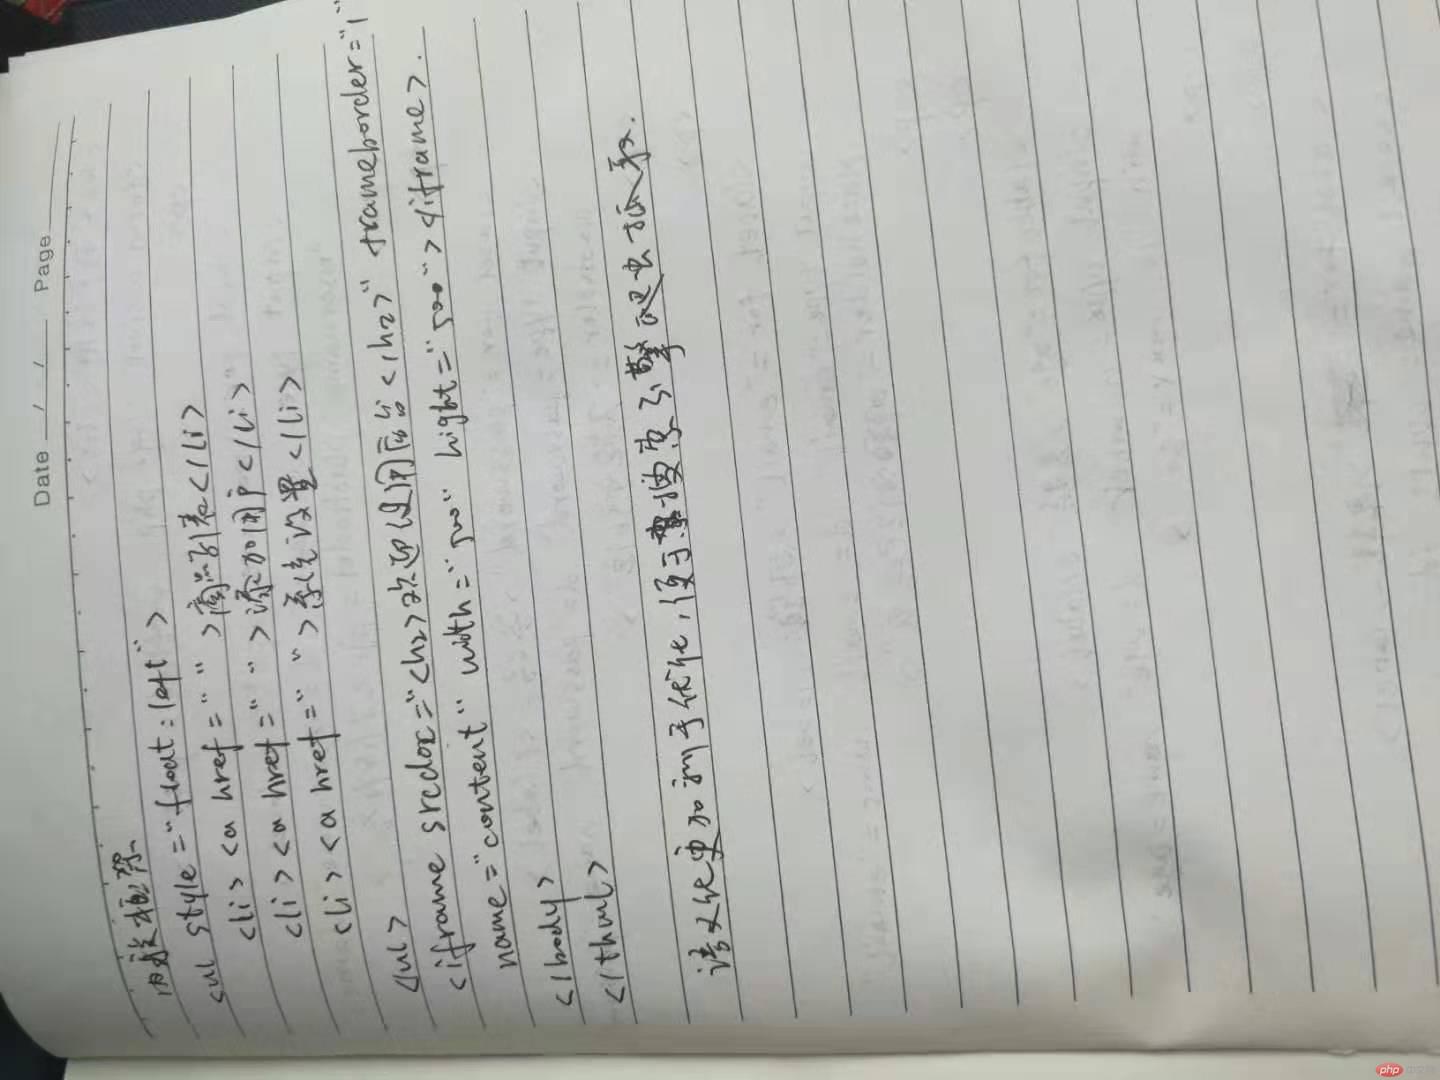 Date / / Page
内嵌框架
<ul style="float:left">
<li><a href=" ">商品列表</li>
<li><a href=" ">添加用户</li>
<li><a href=" ">系统设置</li>
</ul>
<iframe srcdoc="<h2>欢迎使用后台</h2>" frameborder="1"
name="content" with="500" hight="500"></iframe>.
</body>
</html>
语义化更加利于优化,便于搜索引擎爬虫抓取.
php